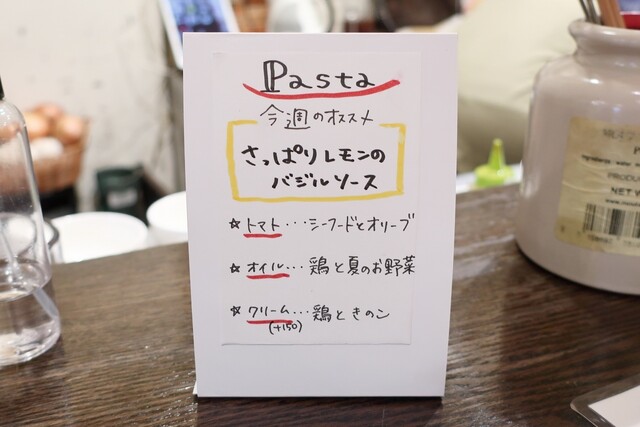 Pasta
今週のオススメ
さっぱりレモンの
バジルソース
☆トマト・・・シーフードとオリーブ
☆オイル・・・鶏と夏のお野菜
☆クリーム・・・鶏ときのこ
(+150)
NET W